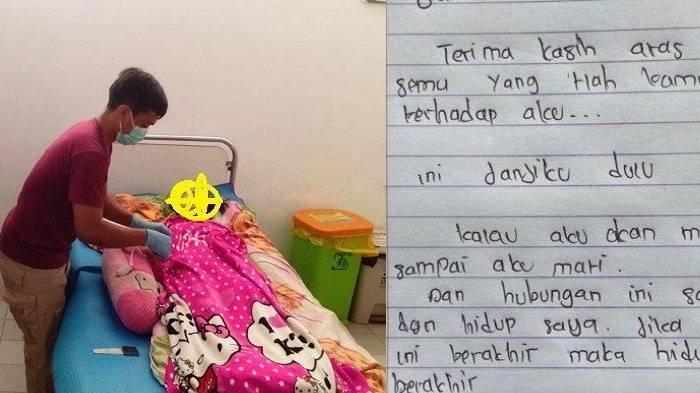 Terima kasih atas
semu yang tlah kam
terhadap aku...
ini Janjiku dulu
kalau aku akan m
sampai aku mati.
Dan hubungan ini sa
dan hidup saya. Jika
ini berakhir maka hidu
berakhir